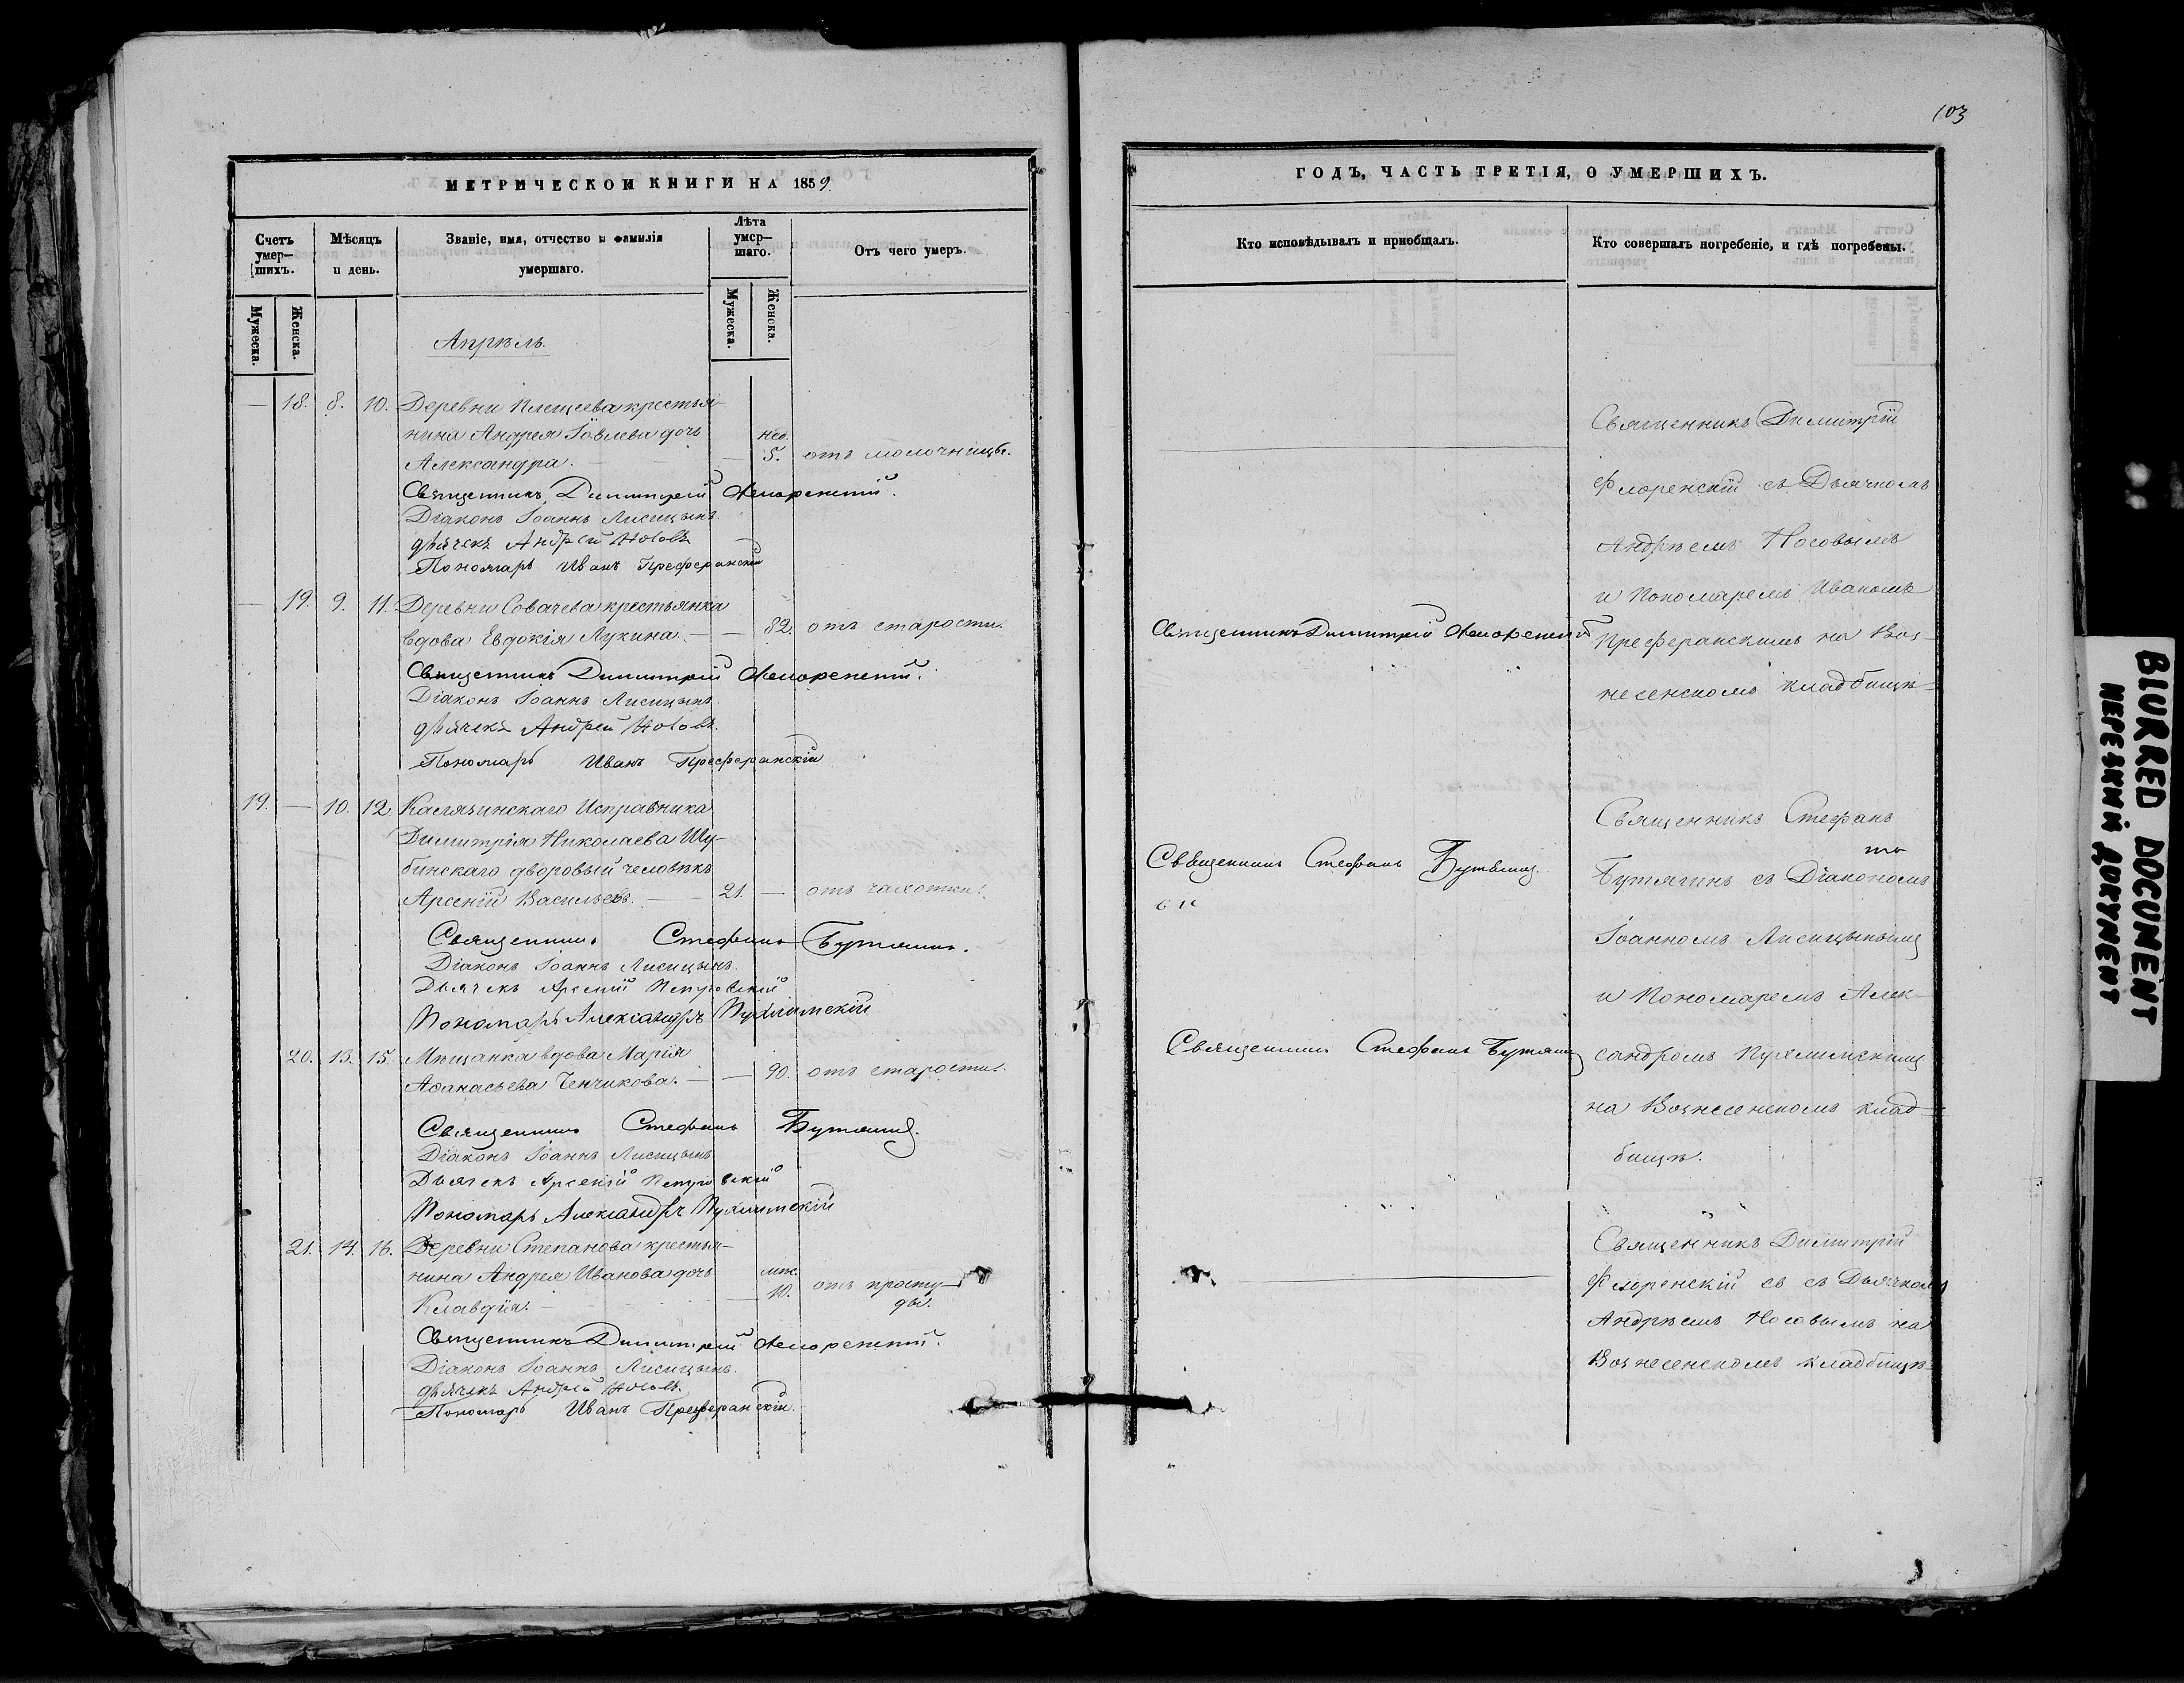 103
МЕТРИЧЕСКОЙ КНИГИ НА 1859.
Счетъ умер–шихъ.
Мѣсяцъ и день.
Званіе, имя, отчество и фамилія умершаго.
Лѣта умер–шаго.
Отъ чего умеръ.
Мужеска.
Женска.
Мужеска.
Женска.
Апрѣль.
— 18. 8. 10. Деревни Плещеева крестья-
нина Андрея Іовлева дочь нед.
Александра. — 5. отъ молочницы.
Священникъ Димитрій Флоренскій.
Діаконъ Іоаннъ Лисицынъ.
дьячекъ Андрей Носовъ
Пономарь Иванъ Преферанскій
— 19. 9. 11. Деревни Совачева крестьянка
вдова Евдокія Лукина. — — 82. отъ старости.
Священникъ Димитрій Флоренскій.
Діаконъ Іоаннъ Лисицынъ.
дьячекъ Андрей Носовъ.
Пономарь Иванъ Преферанскій
19. — 10. 12. Калязинскаго Исправника
Димитрія Николаева Шу-
бинскаго дворовый человѣкъ
Арсеній Васильевъ. — 21. — отъ чахотки.
Священникъ Стефанъ Бутягинъ.
Діаконъ Іоаннъ Лисицынъ.
Дьячекъ Арсеній Петровскій
Пономарь Александръ Пухлимскій
20. 13. 15. Мѣщанка вдова Марія
Аѳанасьева Ченчикова. — — 90. отъ старости.
Священникъ Стефанъ Бутягинъ.
Діаконъ Іоаннъ Лисицынъ
Дьячекъ Арсеній Петровскій
Пономарь Александръ Пухлимскій
21. 14. 16. Деревни Степанова крестья-
нина Андрея Иванова дочь мѣс.
Клавдія. — 10. отъ просту-
ды.
Священникъ Димитрій Флоренскій.
Діаконъ Іоаннъ Лисицынъ.
дьячекъ Андрей Носовъ.
Пономарь Иванъ Преферанскій.
ГОДЪ, ЧАСТЬ ТРЕТІЯ, О УМЕРШИХЪ.
Кто исповѣдывалъ и пріобщалъ.
Кто совершалъ погребеніе, и гдѣ погребены.
Священникъ Димитрій
Флоренскій съ Дьячкомъ
Андреемъ Носовымъ
и Пономаремъ Иваномъ
Священникъ Димитрій Флоренскій
Преферанскимъ на Воз-
несенскомъ кладбищѣ
Священникъ Стефанъ
Священникъ Стефанъ Бутягинъ.
Бутягинъ съ Діакономъ
Іоанномъ Лисицынымъ
и Пономаремъ Алек-
Священникъ Стефанъ Бутягинъ
сандромъ Пухлимскимъ
на Вознесенскомъ клад-
бищѣ.
Священникъ Димитрій
Флоренскій съ съ Дьячкомъ
Андреемъ Носовымъ на
Вознесенскомъ кладбищѣ
BLURRED DOCUMENT
НЕРЕЗКИЙ ДОКУМЕНТ